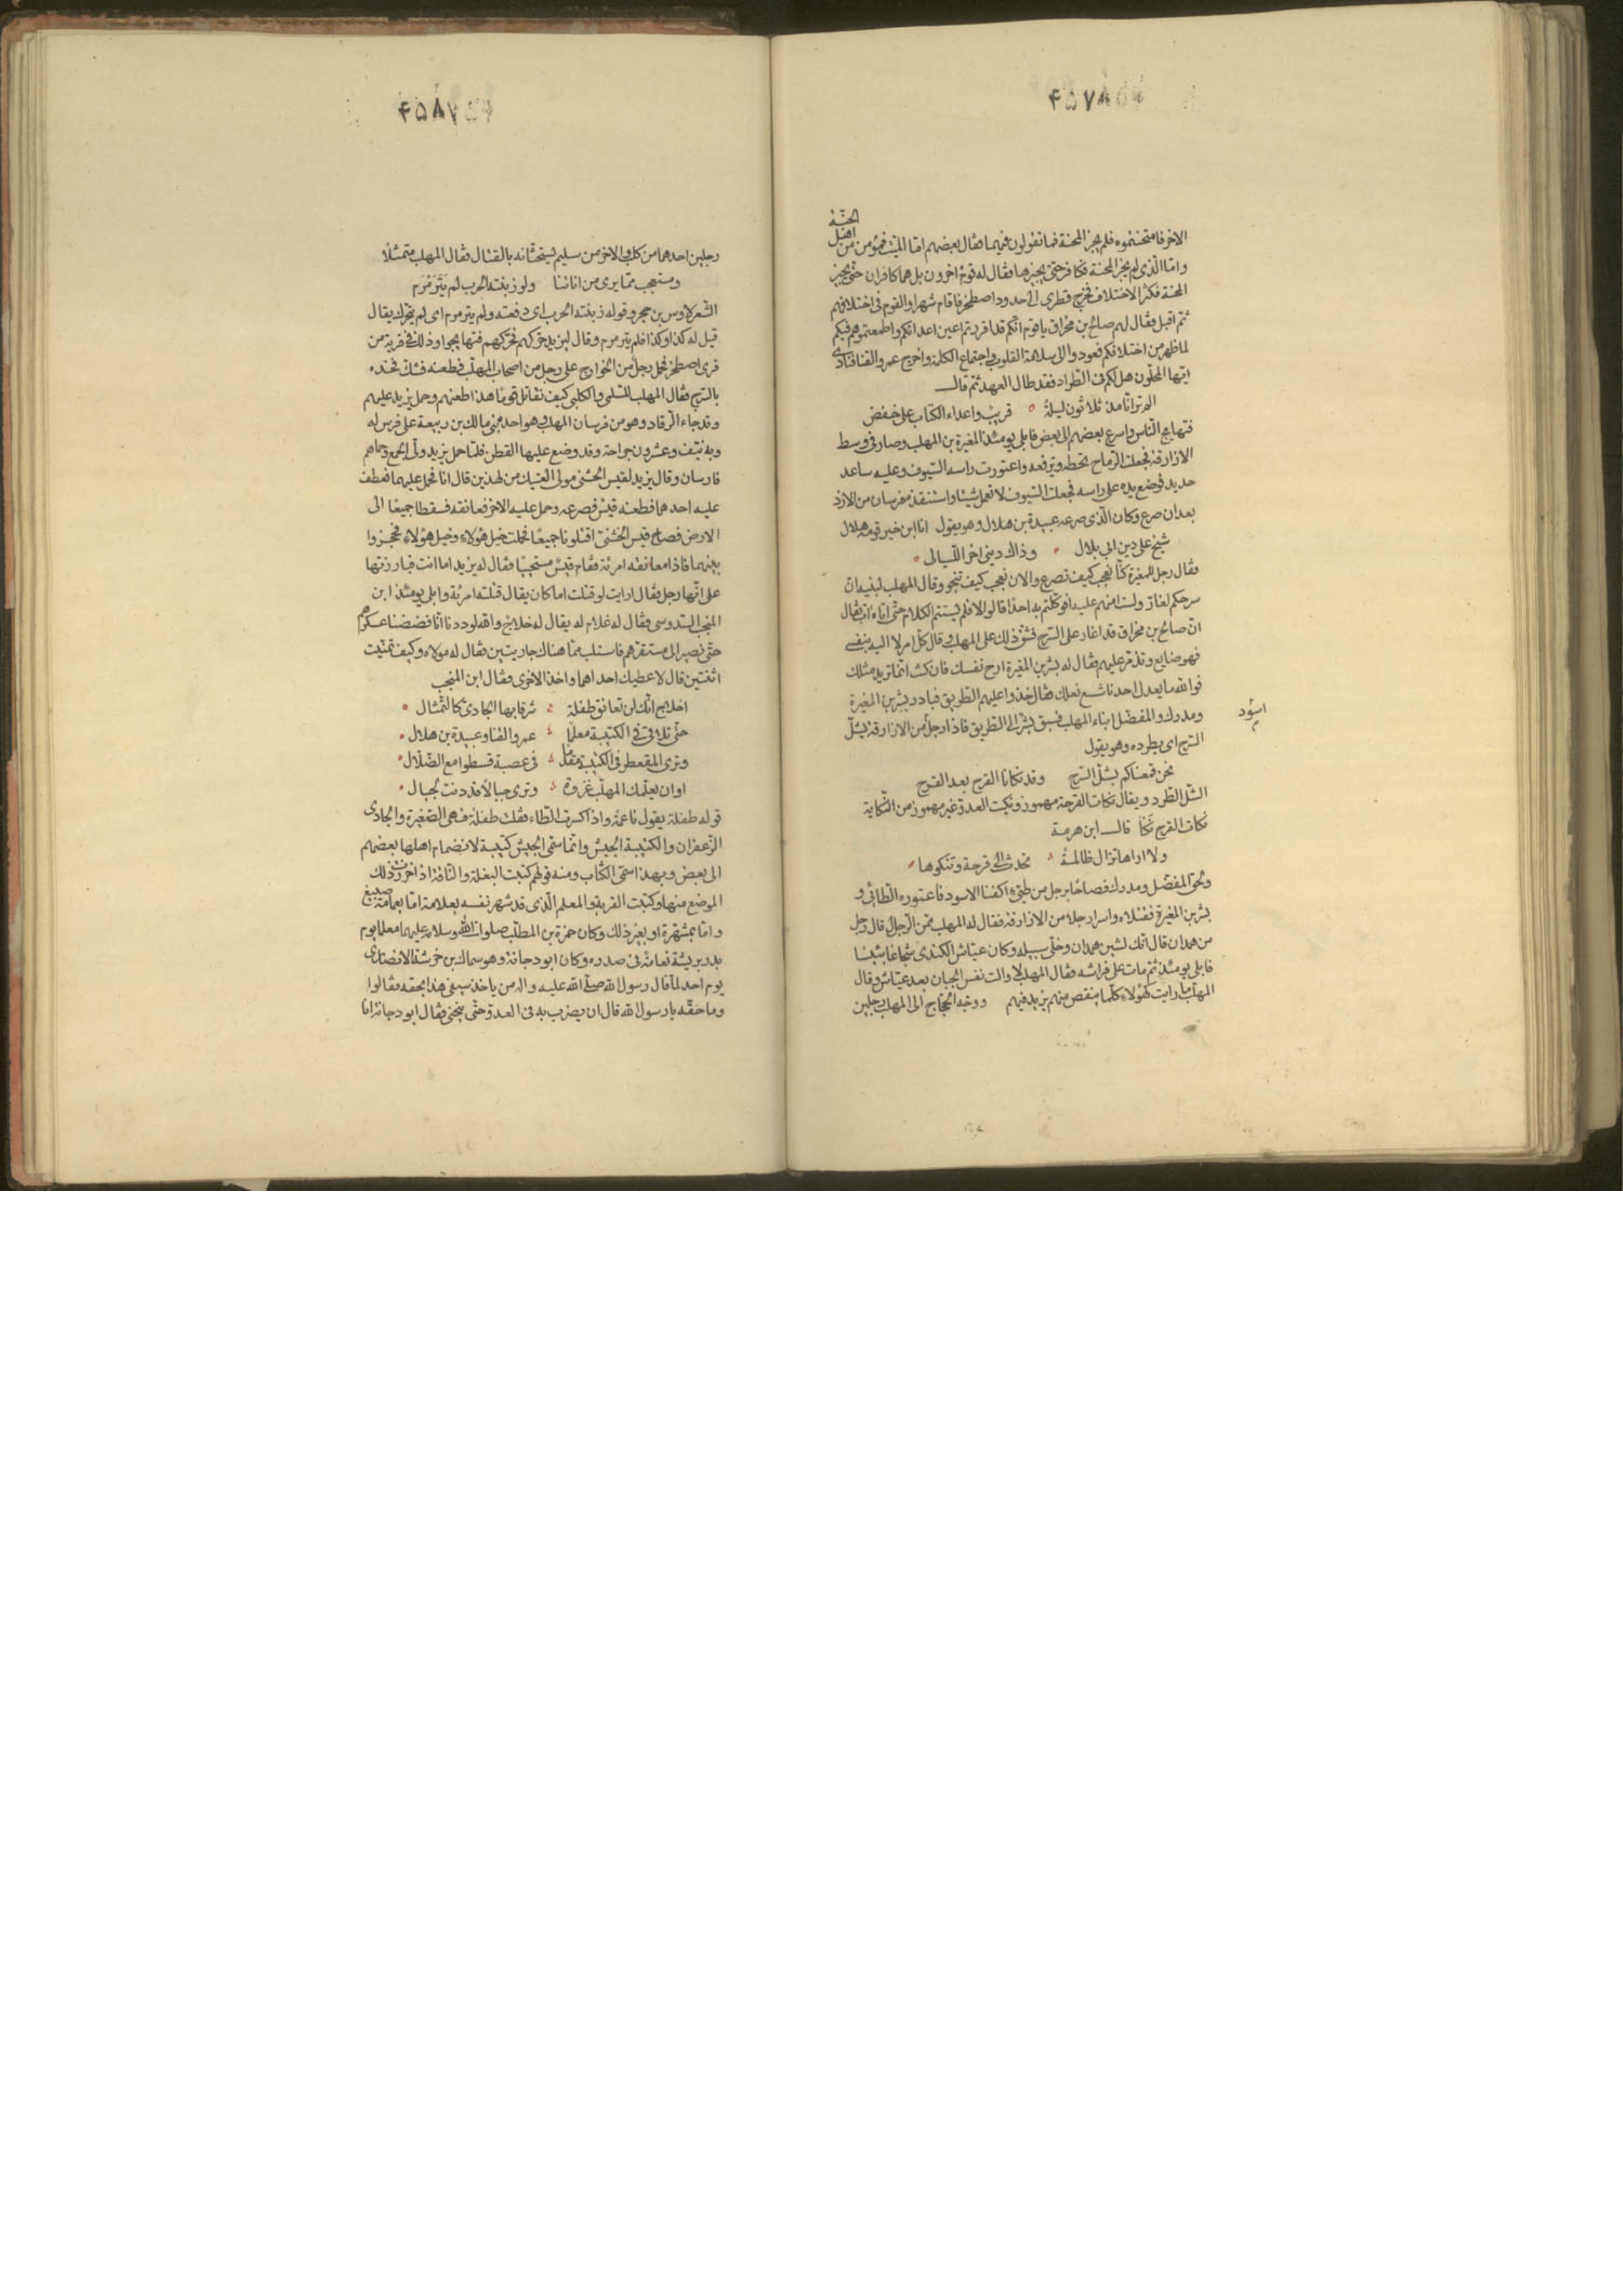 ۴۵۷
الجنّة
الاخر فامتحنتموه فلم يجز المحنة فما تقولون فيهما فقال بعضهم امّا الميّت فمؤمن من اهل
وامّا الّذى لم يجز المحنة فكافر حتّى يجيزها وقال له قوم اخرون بل هما كافران حتّى يجيز
المحنة فكثر الاختلاف فخرج قطرى الى حدود اصطخر فاقام شهرا والقوم فى اختلافهم
ثمّ اقبل فقال لهم صالح بن مخراق يا قوم انّكم قد اقررتم اعين اعدائكم واطمعتموهم فيكم
لما ظهر من اختلافكم فعودوا الى سلامة القلوب واجتماع الكلمة وخرج عمرو القنا فنادى
ايّها المحلّون هل لكم فى الطّراد فقد طال العهد ثم قال
الم تر انّا مذ ثلاثون ليلة قريب واعداء الكتاب على خفض
فتهايج النّاس واسرع بعضهم الى بعض فابلى يومئذ المغيرة بن المهلب وصار فى وسط
الازارقة فجعلت الرّماح تحطه وترفعه واعتورت راسه السّيوف وعليه ساعد
حديد فوضع يده على راسه فجعلت السّيوف لا تعمل شيئا واستنقذه فرسان من الازد
بعد ان صرع وكان الّذى صرعه عبيدة بن هلال وهو يقول انا ابن خير قومه هلال
شيخ على دين ابى بلال وذاك دينى اخر اللّيالى
فقال رجل للمغيرة كنّا نعجب كيف تصرع والان نعجب كيف تنجو وقال المهلب لبنيه انّ
سرحكم لغار ولست امنهم عليه افوكّلتم به احدا قالوا لا فلم يستتم الكلام حتّى اتاه ات فقال
انّ صالح بن مخراق قد اغار على السّرح فشقّ ذلك على المهلب وقال كلّ امر لا اليه بنفسى
فهو ضايع وتذمّر عليهم فقال له بشر بن المغيرة ارح نفسك فان كنت انّما تريد مثلك
فوالله ما يعدل احدنا شسع نعلك فقال خذوا عليهم الطّريق فبادر بشر بن المغيرة
ومدرك والمفضّل ابناء المهلب فسبق بشر الى الطّريق فاذا رجل من الازارقة يشلّ
اسود
السّرح اى يطرده وهو يقول
نحن قمعناكم بشلّ السّرح وقد نكانا القرح بعد القرح
الشّلّ الطّرد ويقال نكات القرحة مهموز ونكيت العدوّ غير مهموز من النّكاية
نكات القرح نكأ قال ابن هرمة
ولا اراها تزال ظالمة تحدث لى قرحة وتنكوها
ولحق المفضّل ومدرك فصاحا برجل من طيّئ اكفنا الاسود فاعتوره الطّائى و
بشر بن المغيرة فقتلاه واسرا رجلا من الازارقة فقال له المهلب ممّن الرّجل قال رجل
من همدان قال انّك لشين همدان وخلّى سبيله وكان عيّاش الكندى شجاعا بئيسا
فابلى يومئذ ثمّ مات على فراشه فقال المهلب لا والت نفس الجبان بعد عيّاش وقال
المهلّب ما رايت كهؤلاء كلّما ينقص منهم يزيد فيهم ووجّه الحجّاج الى المهلب رجلين
۴۵۸
رجلين احدهما من كلب والاخر من سليم يستحثّانه بالقتال فقال المهلب متمثّلا
ومستعجب ممّا يرى من اناتنا ولو زبنته الحرب لم يترمرم
الشّعر لاوس بن حجر وقوله زبنته الحرب اى دفعته ولم يترمرم اى لم يتحرّك يقال
قيل له كذا وكذا فلم يترمرم وقال ليزيد حرّكهم فحرّكهم فتهايجوا وذلك فى قرية من
قرى اصطخر فحمل رجل من الخوارج على رجل من اصحاب المهلّب فطعنه فشكّ فخذه
بالسّرج فقال المهلب للسّلمى والكلبى كيف نقاتل قوما هذا طعنهم وحمل يزيد عليهم
وقد جاء الرّقاد وهو من فرسان المهلب وهو احد بنى مالك بن ربيعة على فرس له
وبه نيّف وعشرون جراحة وقد وضع عليها القطن فلمّا حمل يزيد ولّى الجمع وحماهم
فارسان وقال يزيد لقيس الخشنى مولى العتيك من لهذين قال انا فحمل عليهما فعطف
عليه احدهما فطعنه قيس فصرعه وحمل عليه الاخر فعانقه فسقطا جميعا الى
الارض فصاح قيس الخشنى اقتلونا جميعا فحملت خيل هؤلاء وخيل هؤلاء فحجزوا
بينهما فاذا معانقه امرئة فقام قيس مستحييا فقال له يزيد اما انت فبارزتها
على انّها رجل فقال ارايت لو قتلت اما كان يقال قتلته امرئة وابلى يومئذ ابن
المنجب السّدوسى فقال له غلام له يقال له خلاج والله لوددنا انّا فضضنا عسكرهم
حتّى نصير الى مستقرّهم فاستلب ممّا هناك جاريتين فقال له مولاه وكيف تمنّيت
اثنتين قال لاعطيك احداهما واخذ الاخرى فقال ابن المنجب
اخلاج انّك لن تعانق طفلة شرقا بها الجادىّ كالتّمثال
حتّى تلاقى فى الكتيبة معلما عمرو القنا وعبيدة بن هلال
وترى المقعطر فى الكتيبة مقدما فى عصبة قسطوا مع الضّلّال
او ان يعلّمك المهلّب غزوة وترى جبالا قد دنت لجبال
قوله طفلة يقول ناعمة واذا كسرت الطّاء فقلت طفلة فهى الصّغيرة والجادى
الزّعفران والكتيبة الجيش وانّما سمّى الجيش كتيبة لانضمام اهلها بعضهم
الى بعض وبهذا سمّى الكتاب ومنه قولهم كتبت البغلة والنّاقة اذا خرزت ذلك
الموضع منها وكتبت القربة والمعلم الّذى قد شهر نفسه بعلامة امّا بعمامة صبيغ
وامّا بمشهّرة او بغير ذلك وكان حمزة بن المطّلب صلوات الله وسلامه عليهما معلما يوم
بدر بريشة نعامة فى صدره وكان ابو دجانة وهو سماك بن خرشة الانصارى
يوم احد لمّا قال رسول الله صلّى الله عليه واله من ياخذ سيفى هذا بحقه فقالوا
وما حقّه يا رسول الله قال ان يضرب به فى العدوّ حتّى ينحنى فقال ابو دجانة انا